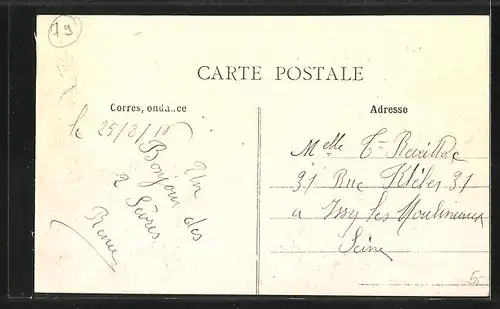 79
CARTE POSTALE
Corres, ondance
Adresse
le 25/8/10
Un
Bonjour des
2 Sèvres.
Renée
Melle T
31 Rue Kléber 31
a Issy les Moulineaux
Seine
5